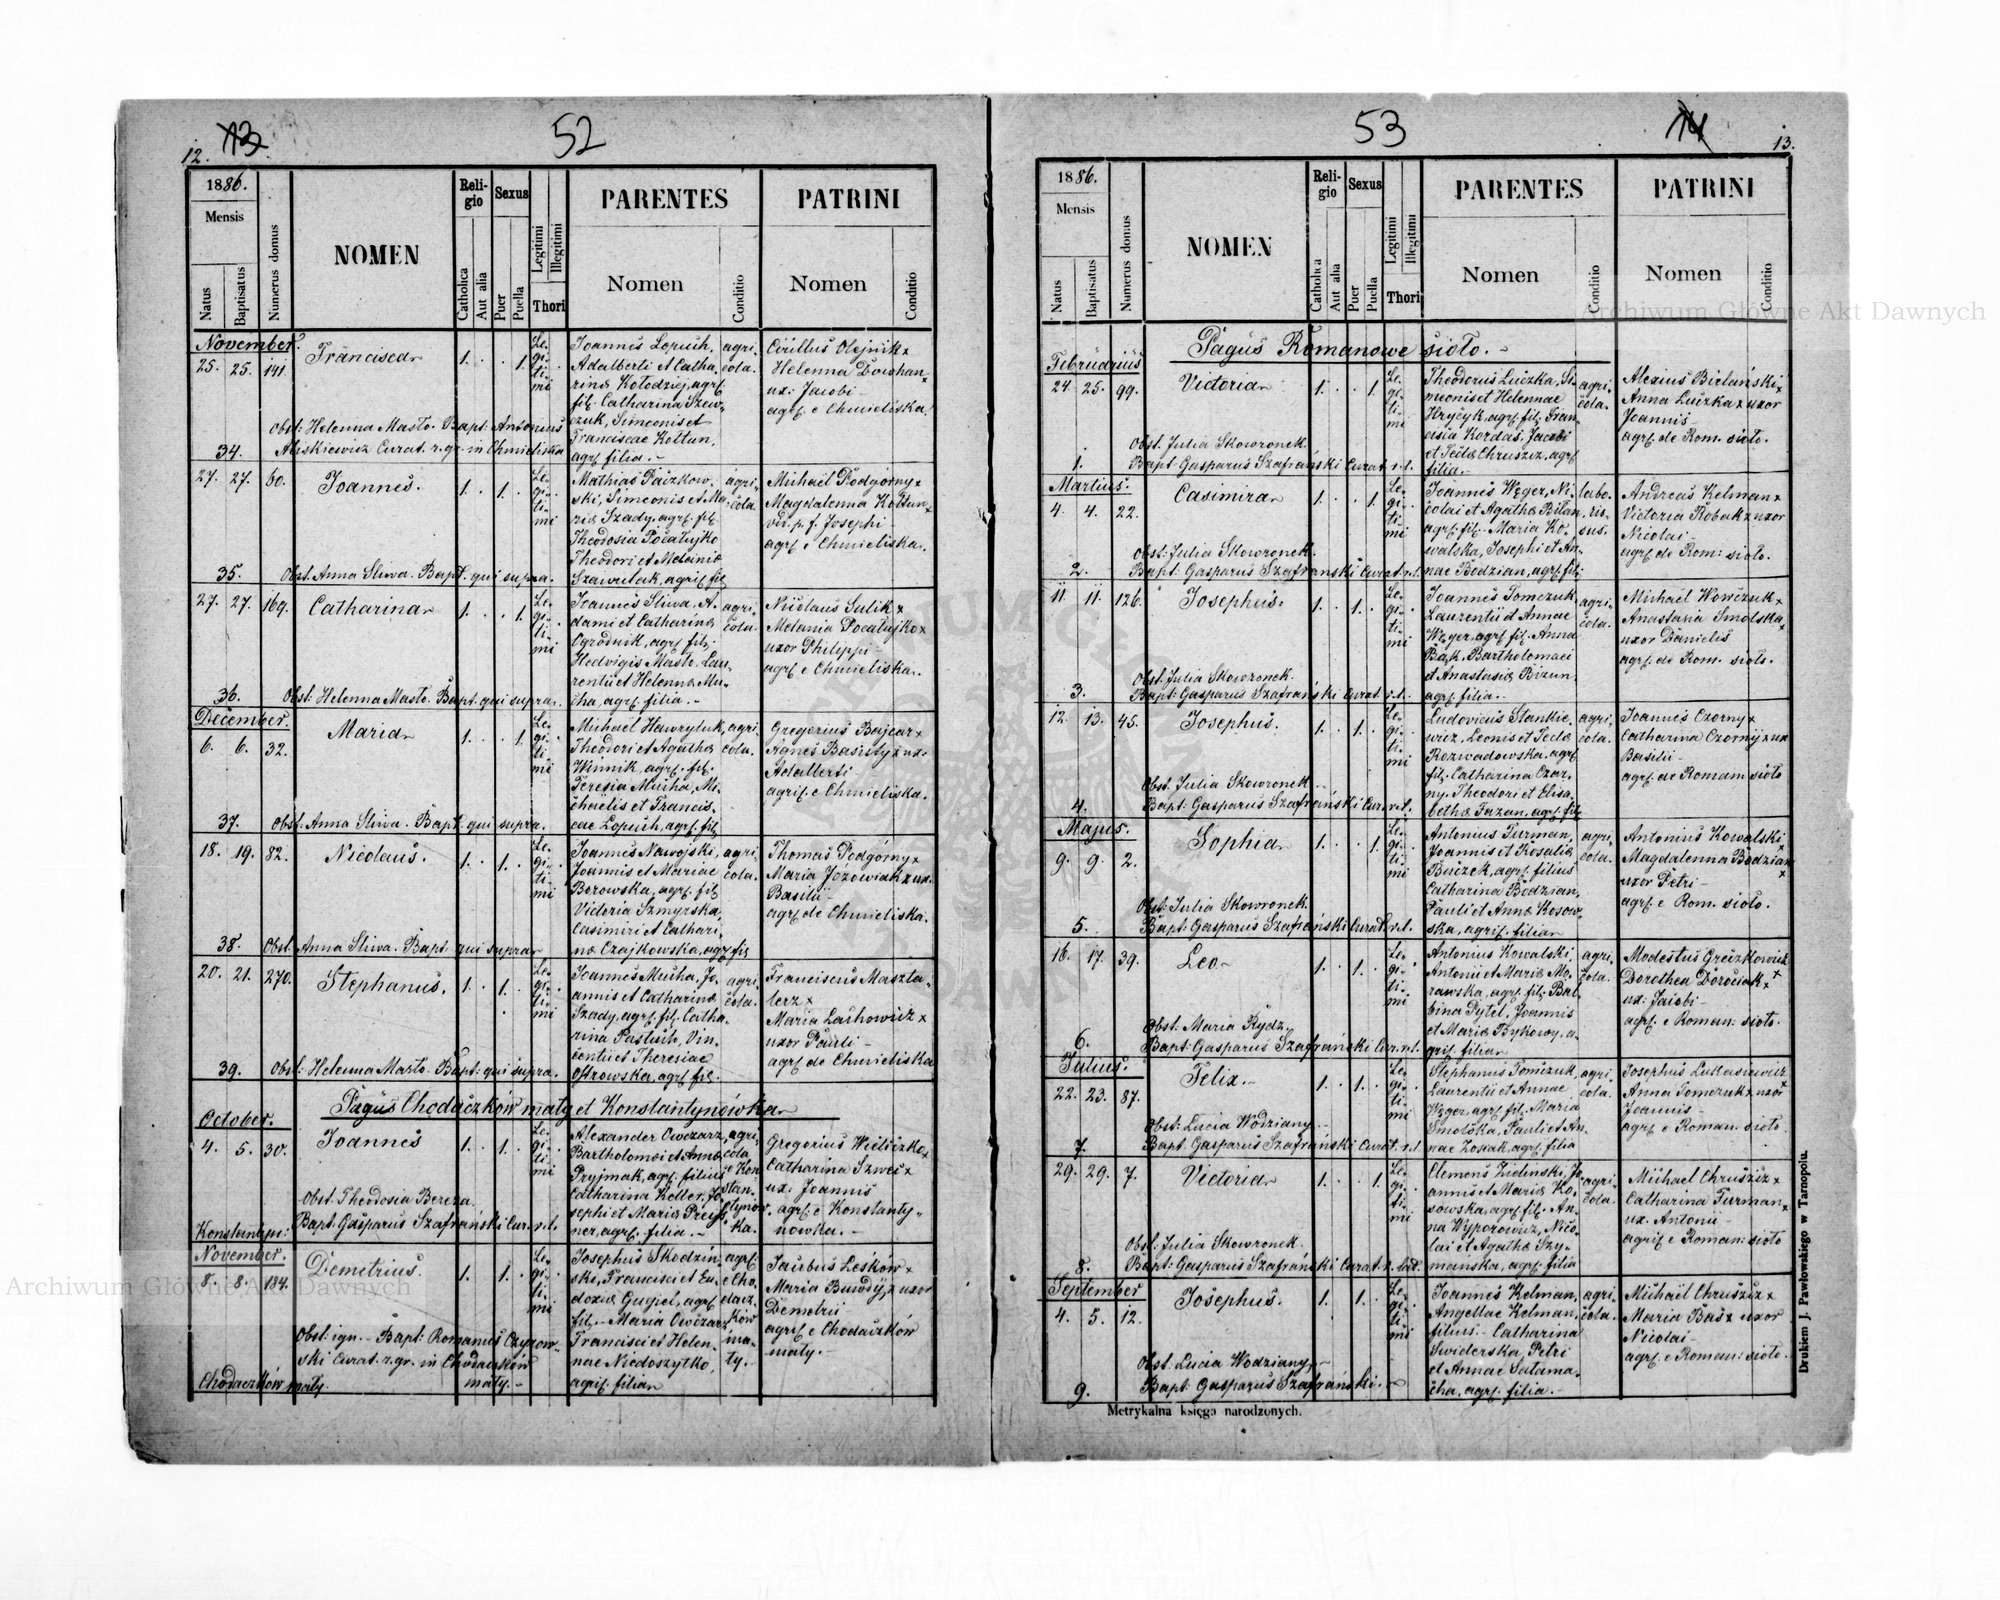 12.
52
1886.
Mensis
Natus
Baptisatus
Numerus domus
NOMEN
Reli-
gio
Catholica
Aut alia
Sexus
Puer
Puella
Legitimi
Illegitimi
Thori
PARENTES
Nomen
Conditio
PATRINI
Nomen
Conditio
November.
25. 25. 141
Francisca
1. 1.
Le-
gi-
ti-
mi
Joannes Lopuch,
Adalberti et Catha-
rinæ Kołodziej, agr.
fil. Catharina Szew-
czuk, Simeonis et
Franciscae Kołtun,
agr. filia. -
agri-
cola.
Cirillus Olejnik x
Helenna Dowhan x
ux: Jacobi -
agr. e Chmieliska.
Obst: Helenna Masło. Bapt: Antonius
34.
Curat. r. gr. in Chmieliska
27. 27. 60.
Joannes.
1. 1.
Le-
gi-
ti-
mi
Mathias Paczkow-
ski, Simeonis et Ma-
riæ Szady, agr. fil.
Theodosia Pocałujko
Theodori et Melaniæ
Szawulak, agri. fil.
agri-
cola.
Michaël Podgórny x
Magdalenna Kołtun x
vid. p. f. Josephi -
agr. e Chmieliska.
35.
Obst. Anna Sliwa. Bapt. qui supra.
27. 27. 169.
Catharina
1. 1.
Le-
gi-
ti-
mi
Joannes Sliwa, A-
dami et Catharinæ
Ogrodnik, agr. fil.
Hedvigis Masło, Lau-
rentii et Helennæ Mu-
cha, agr. filia. -
agri-
cola.
Nicolaus Sulik x
Melania Pocałujko x
uxor Philippi -
agr. e Chmieliska.
36.
Obst: Helenna Masło. Bapt. qui supra.
December.
6. 6. 32.
Maria
1. 1.
Le-
gi-
ti-
mi
Michaël Hawryluk,
Theodori et Agathæ
Winnik, agr. fil.
Teresia Mucha, Mi-
chaëlis et Francis-
cae Lopuch, agr. fil.
agri-
cola.
Gregorius Bajcar x
Agnes Basisty x ux:
Adalberti
agri. e Chmieliska.
37.
Obst. Anna Sliwa. Bapt. qui supra.
18. 19. 82.
Nicolaus.
1. 1.
Le-
gi-
ti-
mi
Joannes Nawojski,
Joannis et Mariae
Berowska, agr. fil.
Victoria Szmyrska,
Casimiri et Cathari-
næ Czajkowska, agr. fil.
agri-
cola.
Thomas Podgórny x
Maria Jozowiak x ux.
Basilii -
agr. de Chmieliska.
38.
Obst. Anna Sliwa. Bapt. qui supra
20. 21. 270.
Stephanus.
1. 1.
Le-
gi-
ti-
mi
Joannes Mucha, Jo-
annis et Catharinæ
Szady, agr. fil. Catha-
rina Pastuch, Vin-
centii et Theresiae
Ostrowska, agr. fil.
agri-
cola.
Franciscus Maszta-
lerz x
Maria Lachowicz x
uxor Pauli -
agr. de Chmieliska
39.
Obst: Helenna Masło. Bapt: qui supra.
Pagus Chodaczków mały et Konstantynówka
October.
4. 5. 30.
Joannes
1. 1.
Le-
gi-
ti-
mi
Alexander Owczarz,
Bartholomæi et Annæ
Pryjmak, agr. filius
Catharina Keller, Jo-
sephi et Mariæ Preiss-
ner, agr. filia. -
agri-
cola
e Kon-
stan-
tynów-
ka.
Gregorius Wieliczko x
Catharina Szwec x
ux. Joannis
agr. e Konstanty-
nówka. -
Obst. Theodosia Bereza.
Bapt. Gasparus Szafrański Cur. r. l.
Konstantyn:
November.
8. 8. 184.
Demetrius.
1. 1.
Le-
gi-
ti-
mi
Josephus Skodzin-
ski, Francisci et Eu-
doxiæ Gugiel, agr.
fil. - Maria Owczarz
Francisci et Helen-
nae Niedoszytko,
agri. filia
agr.
e Cho-
dacz-
ków
ma-
ły.
Jacobus Leskow x
Maria Burdyj x uxor
Demetrii
agri. e Chodaczkow
mały. -
Obst: ign. - Bapt: Romanus Czyrow-
ski Curat. r. gr. in Chodaczków
mały. -
Chodaczków mały.
53
13.
1886.
Mensis
Natus
Baptisatus
Numerus domus
NOMEN
Reli-
gio
Catholica
Aut alia
Sexus
Puer
Puella
Legitimi
Illegitimi
Thori
PARENTES
Nomen
Conditio
PATRINI
Nomen
Conditio
Archiwum Główne Akt Dawnych
Pagus Romanowe sioło. -
Februarius
24 25. 99.
Victoria
1. 1.
Le-
gi-
ti-
mi
Theodorus Luczka, Si-
meonis et Helennae
Hryćyk, agr. fil. Fran-
cisca Kordas, Jacobi
et Teclæ Chruszcz, agr.
filia. -
agri-
cola.
Alexius Bielański x
Anna Luczka x uxor
Joannis -
agr. de Rom. sioło.
Obst. Julia Skowronek.
1.
Bapt. Gasparus Szafrański Curat. r. l.
Martius.
4. 4. 22.
Casimira
1. 1.
Le-
gi-
ti-
mi
Joannes Węger, Ni-
colai et Agathæ Bilan,
agr. fil. Maria Ko-
walska, Josephi et An-
nae Bodzian, agr. fil.
labo-
rio-
sus.
Andreas Kelman x
Victoria Robak x uxor
Nicolai -
agr. de Rom: sioło.
Obst: Julia Skowronek.
2.
Bapt: Gasparus Szafrański Curat. r. l.
11 11. 126.
Josephus.
1. 1.
Le-
gi-
ti-
mi
Joannes Tomczuk,
Laurentii et Annae
Węger, agr. fil. Anna
Bąk, Bartholomaei
et Anastasiæ Bizun,
agr. filia. -
agri-
cola.
Michaël Wowczuk x
Anastasia Smolska x
uxor Danielis
agr. de Rom. sioło.
Obst. Julia Skowronek.
3.
Bapt: Gasparus Szafrański Curat. r. l.
12. 13. 45.
Josephus.
1. 1.
Le-
gi-
ti-
mi
Ludovicus Stankie-
wicz, Leonis et Teclæ
Rozwadowska, agr.
fil. Catharina Czar-
ny, Theodori et Elisa-
bethæ Fazan, agr. fil.
agri-
cola.
Joannes Czorny x
Catharina Czornyj x ux
Basilii -
agr. de Romam sioło
Obst. Julia Skowronek
4.
Bapt: Gasparus Szafrański Cur. r. l.
Majus.
9. 9. 2.
Sophia
1. 1.
Le-
gi-
ti-
mi
Antonius Furman,
Joannis et Rosaliæ
Buczek, agr. filius
Catharina Bodzian,
Pauli et Annæ Kosow-
ska, agri. filia
agri-
cola.
Antonius Kowalski x
Magdalenna Bodzian x
uxor Petri -
agr. e Rom. sioło.
Obst: Julia Skowronek.
5.
Bapt: Gasparus Szafrański Curat. r. l.
16. 17. 39.
Leo
1. 1.
Le-
gi-
ti-
mi
Antonius Kowalski,
Antonii et Mariæ Mo-
rawska, agr. fil. Bal-
bina Pytel, Joannis
et Mariæ Bykowy, a-
gri. filia
agri-
cola.
Modestus Greczkowicz x
Dorothea Dorociak x
ux. Jacobi -
agr. e Roman: sioło.
Obst. Maria Rydz.
6.
Bapt: Gasparus Szafrański Cur. r. l.
Julius.
22. 23. 87.
Felix. -
1. 1.
Le-
gi-
ti-
mi
Stephanus Tomczuk,
Laurentii et Annae
Węger, agr. fil. Maria
Smolska, Pauli et An-
nae Zosiak, agr. filia
agri-
cola.
Josephus Lukasiewicz x
Anna Tomczuk x uxor
Joannis -
agr. e Roman: sioło
Obst: Lucia Wodziany -
7.
Bapt. Gasparus Szafrański Curat. r. l.
29. 29. 7.
Victoria
1. 1.
Le-
gi-
ti-
mi
Clemens Zielinski, Jo-
annis et Mariæ Ko-
sowska, agr. fil. An-
na Wyporowicz, Nico-
lai et Agathæ Szy-
manska, agr. filia
agri-
cola.
Michael Chruszcz x
Catharina Furman x
ux. Antonii -
agri. e Roman: sioło
Obst: Julia Skowronek.
8.
Bapt: Gasparus Szafrański Curat. r. lat.
September
4. 5. 12.
Josephus.
1. 1.
Le-
gi-
ti-
mi
Joannes Kelman,
Angellae Kelman,
filius. - Catharina
Swiderska, Petri
et Annae Salama-
cha, agr. filia. -
agri-
cola.
Michaël Chruszcz x
Maria Bas x uxor
Nicolai -
agr. e Roman: sioło.
Obst. Lucia Wodziany. -
9.
Bapt. Gasparus Szafrański. -
Metrykalna księga narodzonych.
Drukiem J. Pawłowskiego w Tarnopolu.
Archiwum Główne Akt Dawnych